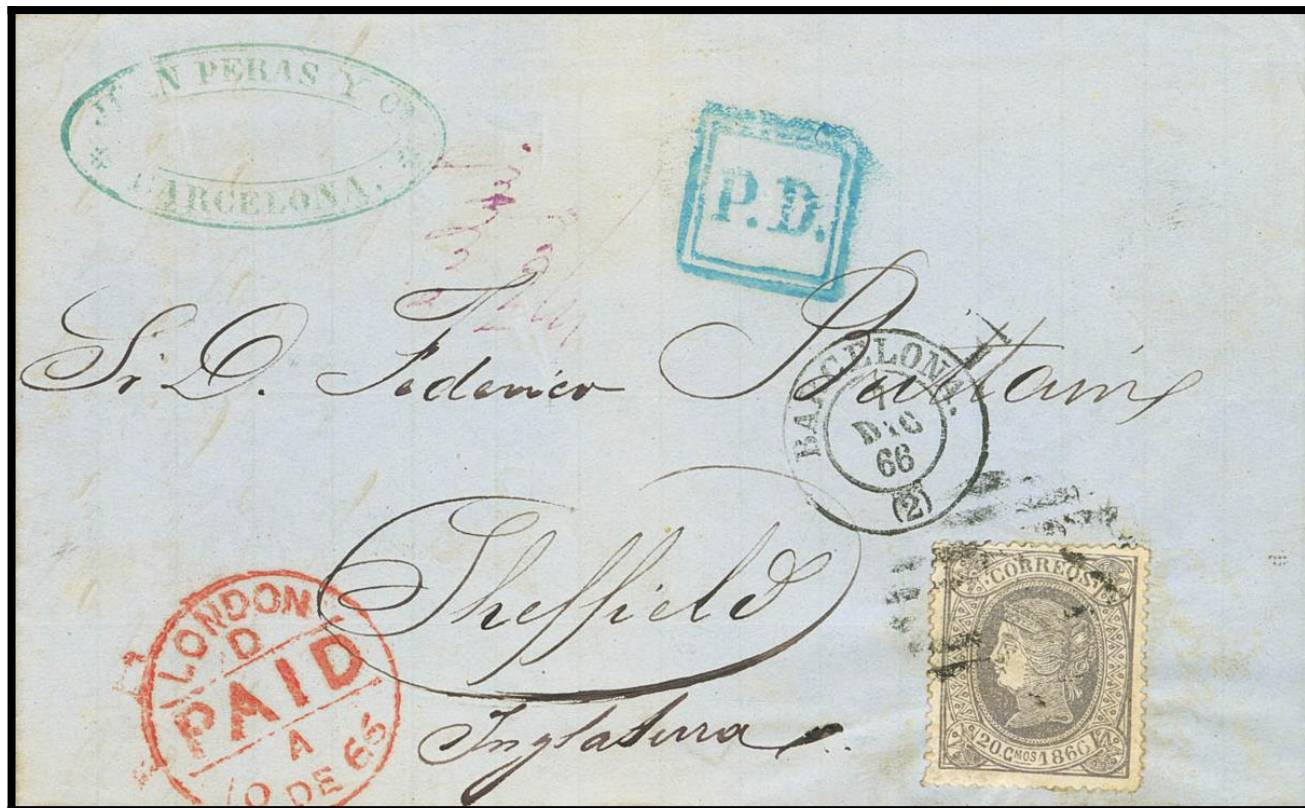 PERAS Y Cª
BARCELONA.
P.D.
Sr. D. Federico Brittain
BARCELONA.
DIC
66
(2)
Sheffield
Inglaterra
LONDON
D
PAID
A
10 DE 66
CORREOS
20 C.MOS 1866